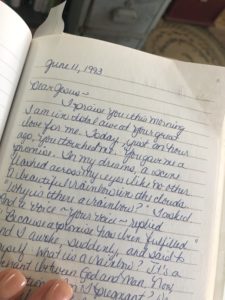 June 11, 1993
Dear Jesus ~
I praise you this morning
I am in
awe at your great
love for me. Today, just an hour
ago, you touched me. You gave me a
promise. In my dreams, a scene
flashed across my eyes like no other
A beautiful rainbow in the clouds.
"Why is there a rainbow?" I asked
And a voice ~ Your voice ~ replied
"Because a promise has been fulfilled"
And I awoke, suddenly, and said to
myself. What is a rainbow? It's a
between God and Man. Now,
I pregnant?